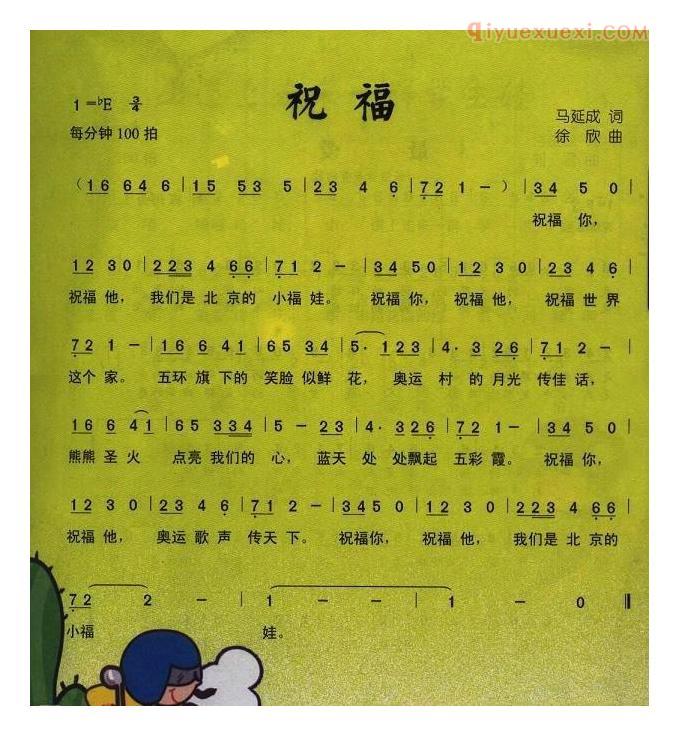 Qiyuexuexi.COM
祝福
1=♭E 3/4
马延成 词
每分钟100拍
徐欣 曲
(16 64 6 | 15 53 5 | 23 4 6 | 72 1 - ) | 34 5 0 |
祝福 你,
12 30 | 223 4 66 | 71 2 - | 34 50 | 12 3 0 | 23 4 6 |
祝福 他, 我们是 北 京的 小福 娃。 祝福 你, 祝福 他, 祝福 世 界
72 1 - | 16 6 41 | 65 34 | 5· 123 | 4· 326 | 71 2 - |
这个 家。 五环 旗 下的 笑脸 似鲜 花, 奥运 村 的 月光 传佳 话,
16 6 41 | 65 334 | 5 - 23 | 4· 326 | 72 1 - | 34 5 0 |
熊熊 圣 火 点亮 我们的 心, 蓝天 处 处飘起 五彩 霞。 祝福 你,
12 3 0 | 23 4 6 | 71 2 - | 345 0 | 12 3 0 | 223 4 66 |
祝福 他, 奥运 歌 声 传天 下。 祝福你, 祝福 他, 我们是 北 京的
72 2 - | 1 - - | 1 - 0 ‖
小福 娃。